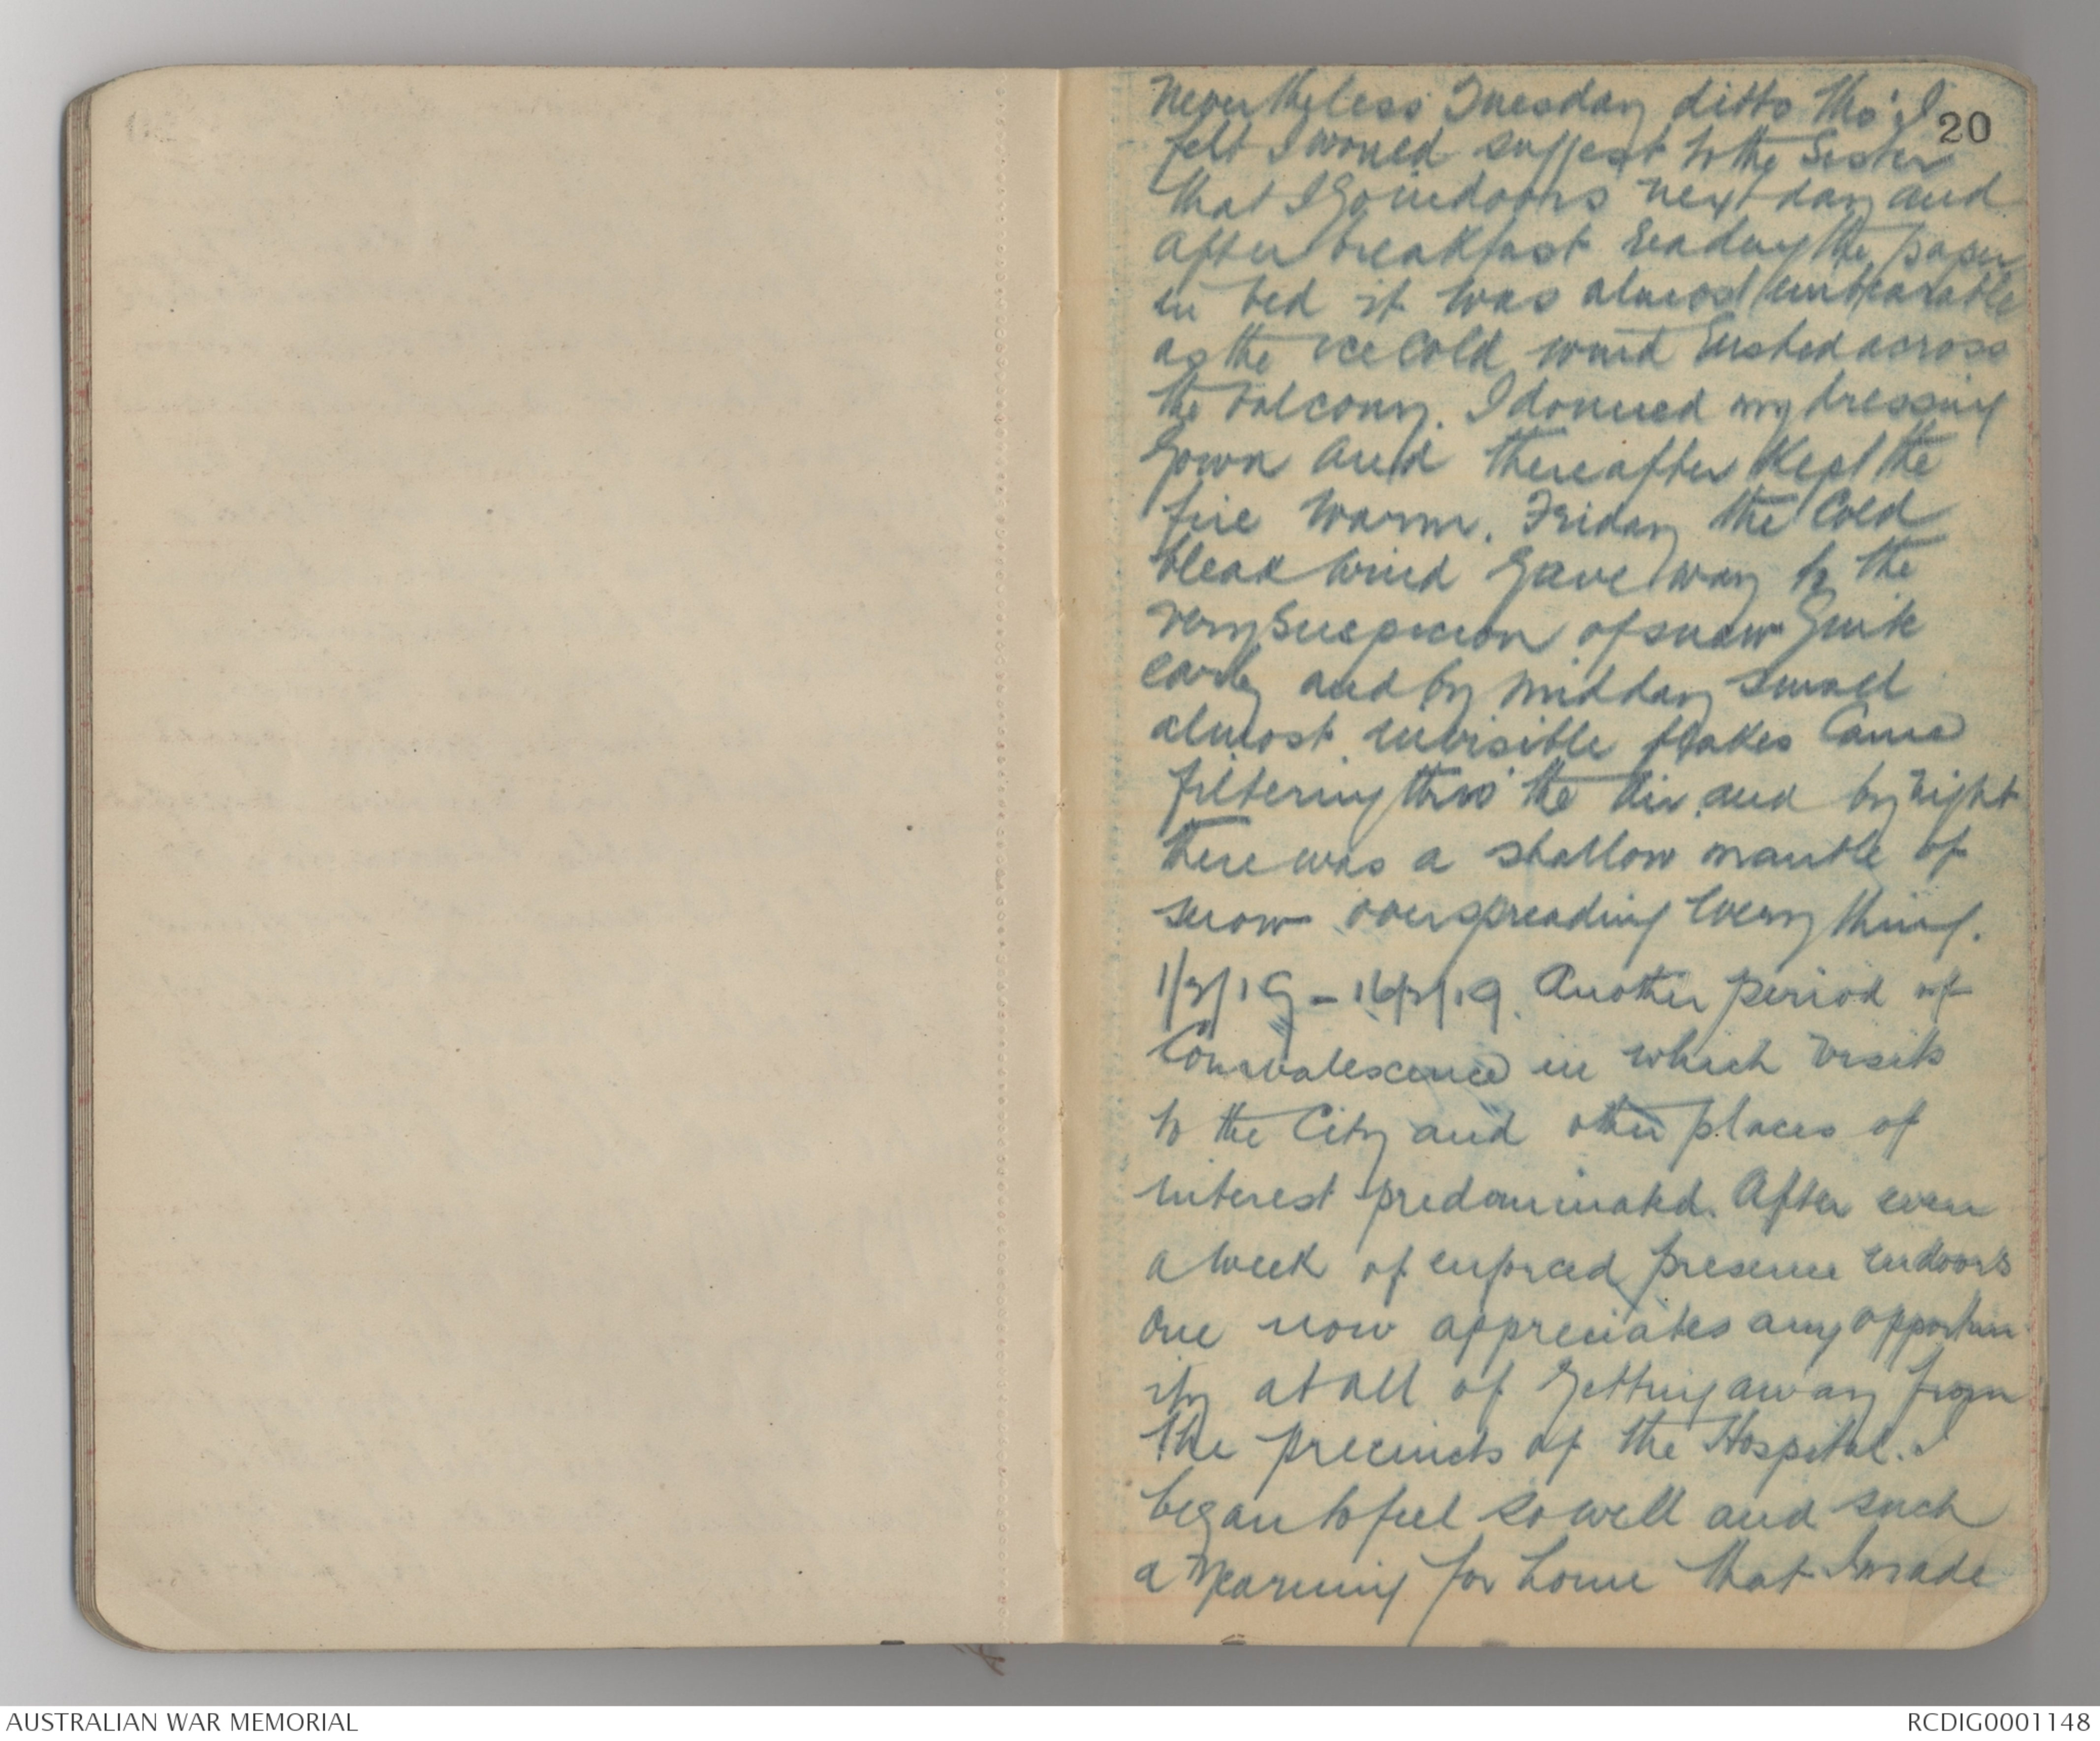 20
Nevertheless Tuesday ditto tho' I
felt I would suggest to the Sister
that I go indoors next day and
after breakfast reading the paper
in bed it was almost unbearable
as the ice cold wind rushed across
the balcony. I donned my dressing
gown and thereafter kept the
fire warm. Friday the cold
bleak wind gave way to the
very suspicion of snow quite
early and by midday small
almost invisible flakes came
filtering thro' the air and by night
there was a shallow mantle of
snow overspreading everything.
1/2/19 - 16/2/19. Another period of
Convalescence in which visits
to the City and other places of
interest predominated. After even
a week of enforced presence indoors
one now appreciates any opportun-
ity at all of getting away from
the precincts of the Hospital. I
began to feel so well and such
a yearning for home that I made
AUSTRALIAN WAR MEMORIAL
RCDIG0001148